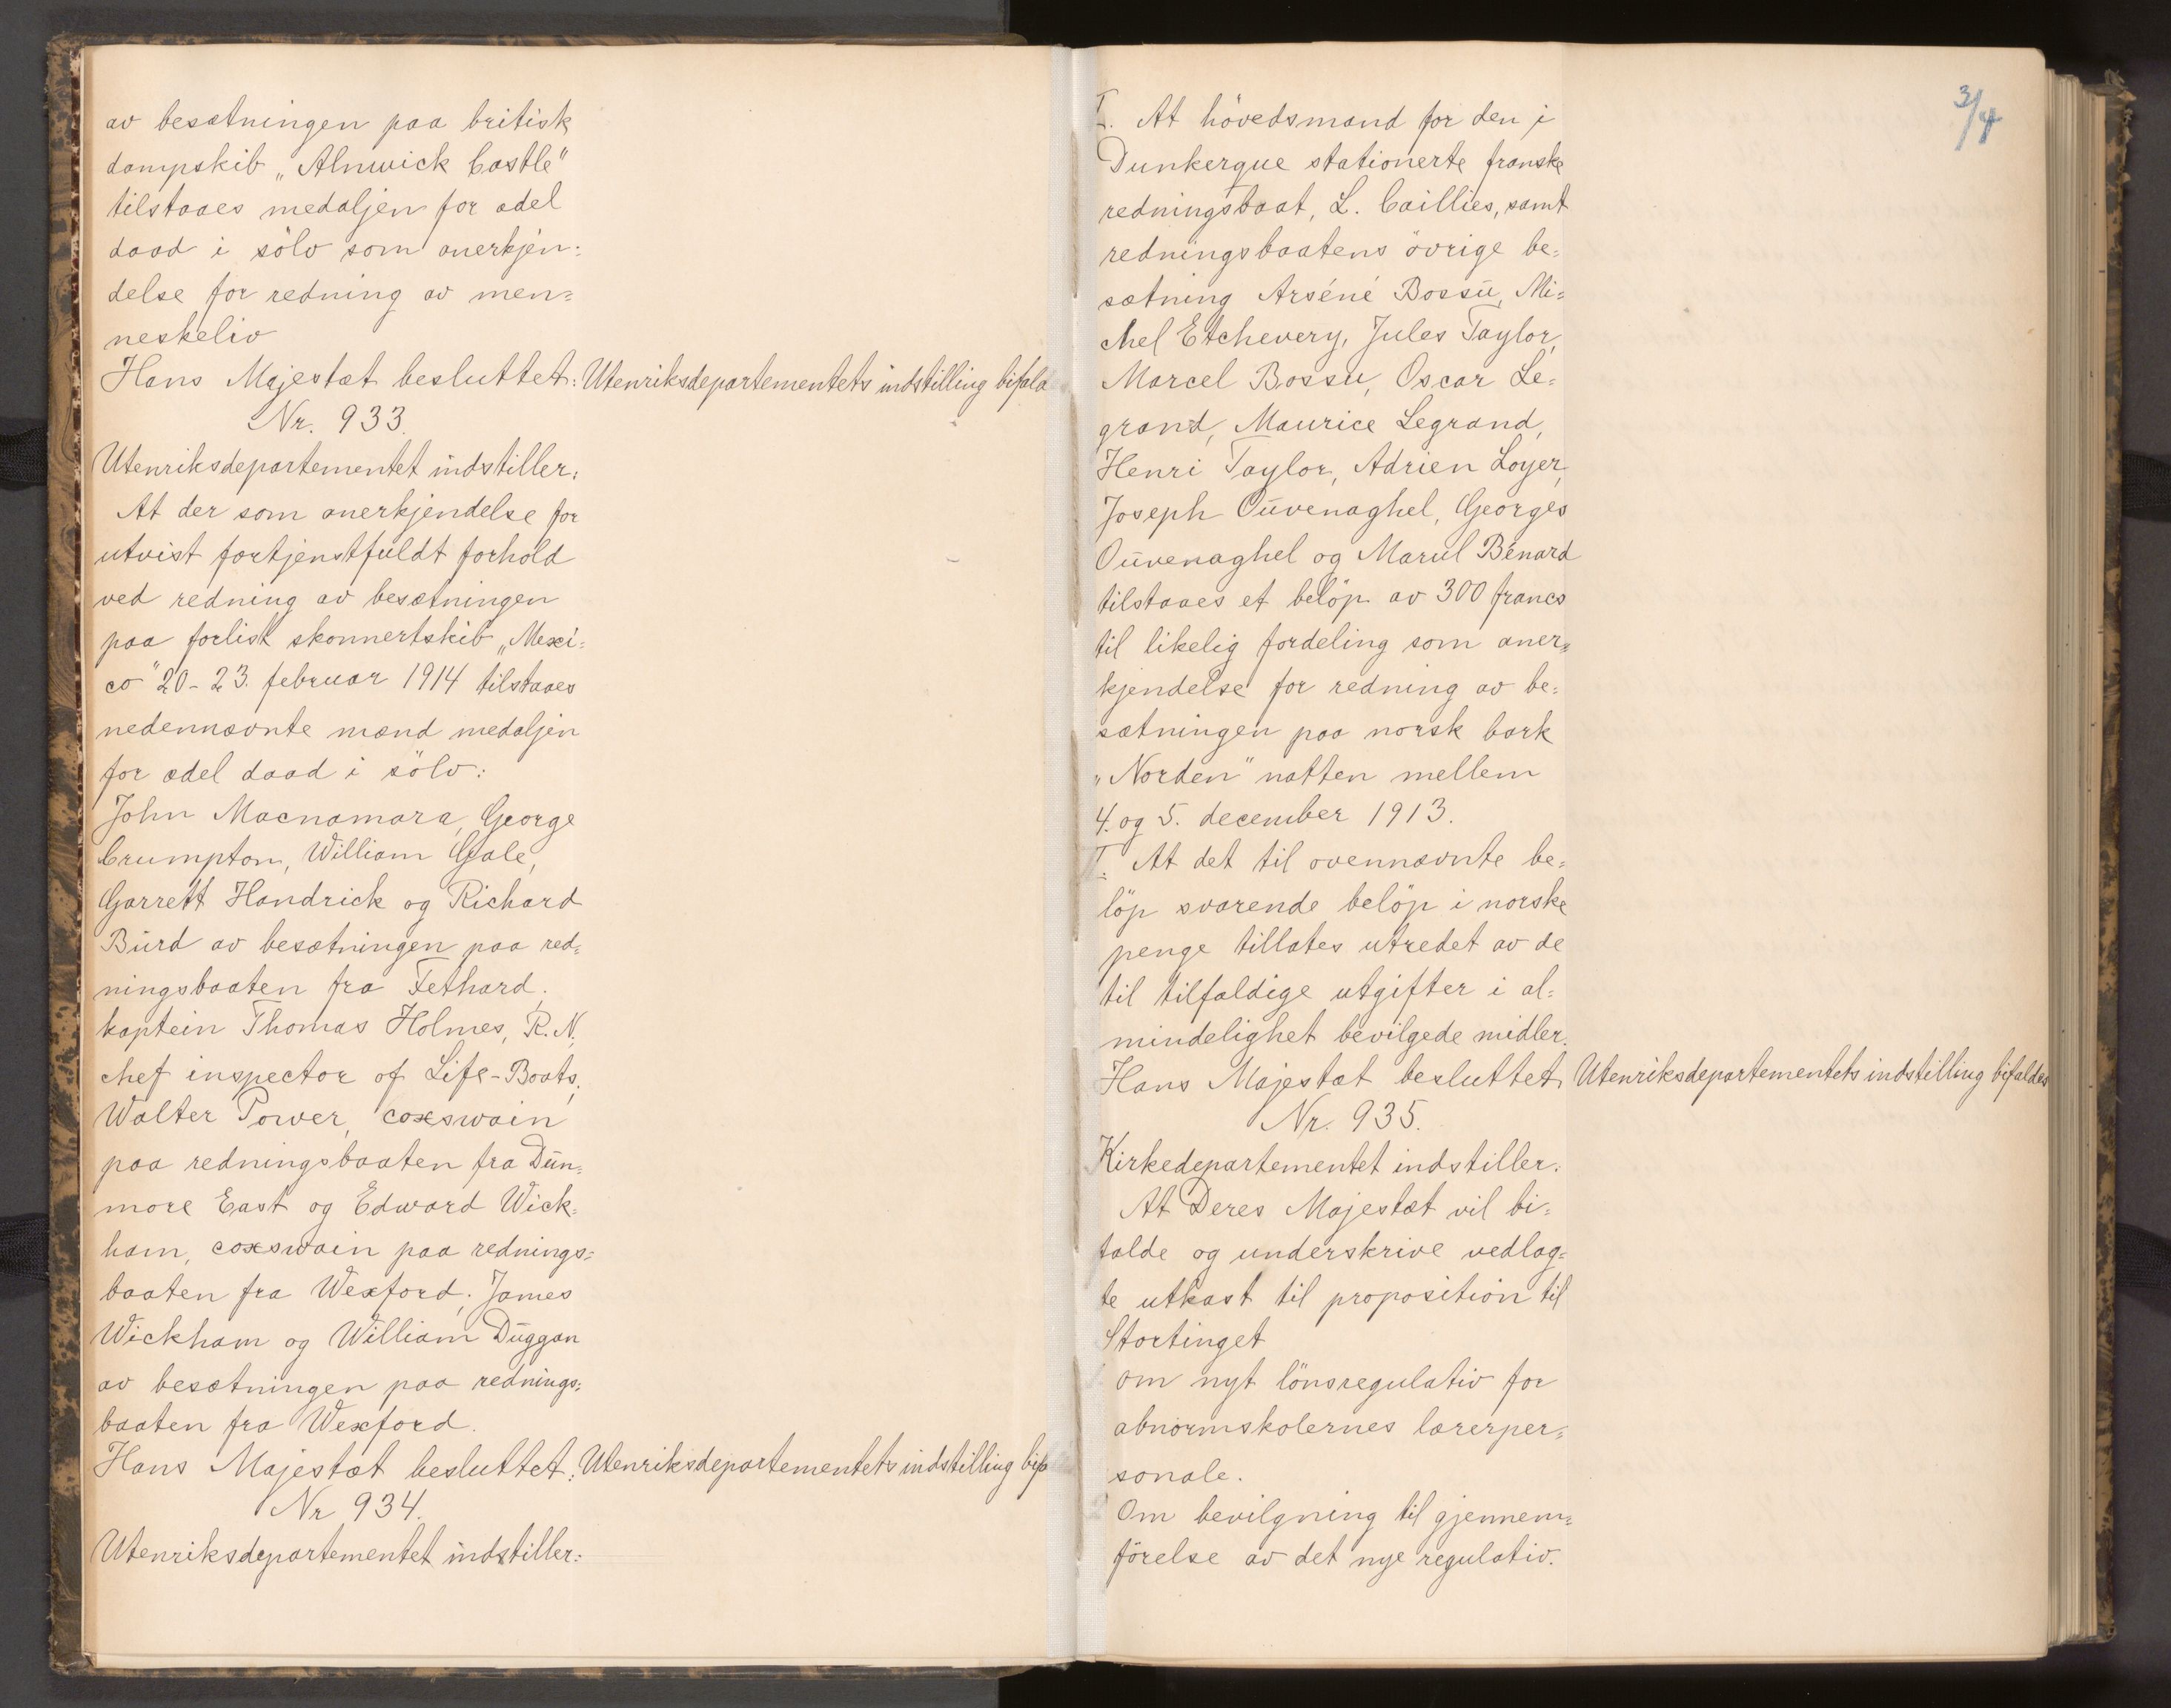 av besætningen paa britisk
dampskib „Alnwick Castle"
tilstaaes medaljen for ædel
daad i sölv som anerkjen=
delse for redning av men=
neskeliv
Hans Majestæt besluttet: Utenriksdepartementets indstilling bifald
Nr. 933.
Utenriksdepartementet indstiller:
At der som anerkjendelse for
utvist fortjenstfuldt forhold
ved redning av besætningen
paa forlist skonnertskib „Mexi=
co" 20-23. februar 1914 tilstaaes
nedennævnte mænd medaljen
for ædel daad i sölv:
John Macnamara, George
Crumpton, William Gale,
Garrett Handrick og Richard
Bird av besætningen paa red=
ningsbaaten fra Fethard.
kaptein Thomas Holmes, R.N.,
chef inspector of Life-Boats,
Walter Power, coxswain
paa redningsbaaten fra Dun=
more East og Edward Wick=
ham, coxswain paa rednings=
baaten fra Wexford; James
Wickham og William Duggan
av besætningen paa rednings=
baaten fra Wexford.
Hans Majestæt besluttet: Utenriksdepartementets indstilling bif
Nr 934.
Utenriksdepartementet indstiller:
3/4
I. At hövedsmand for den i
Dunkerque stationerte franske
redningsbaat, L. Caillies, samt
redningsbaatens övrige be=
sætning Arséné Bossu, Mi=
chel Etchevery, Jules Taylor,
Marcel Bossu, Oscar Le=
grand, Maurice Legrand,
Henri Taylor, Adrien Loyer,
Joseph Ouvenaghel, Georges
Ouvenaghel og Marul Bénard
tilstaaes et belöp av 300 francs
til likelig fordeling som aner=
kjendelse for redning av be=
sætningen paa norsk bark
„Norden" natten mellem
4. og 5. december 1913.
II. At det til ovennævnte be=
löp svarende belöp i norske
penge tillates utredet av de
til tilfældige utgifter i al=
mindelighet bevilgede midler.
Hans Majestæt besluttet: Utenriksdepartementets indstilling bifaldes
Nr. 935.
Kirkedepartementet indstiller:
At Deres Majestæt vil bi=
falde og underskrive vedlag=
te utkast til proposition til
Stortinget
om nyt lönsregulativ for
abnormskolernes lærerper=
sonale.
Om bevilgning til gjennem=
förelse av det nye regulativ.